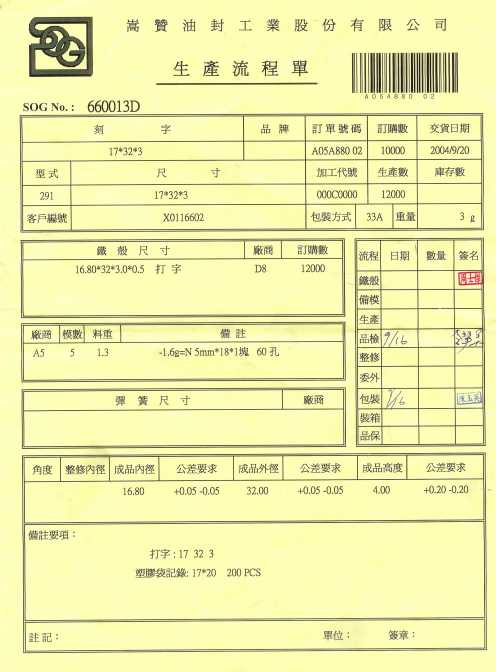 SOG
嵩贊油封工業股份有限公司
生產流程單
A05A880 02
SOG No.： 660013D
刻字 品牌 訂單號碼 訂購數 交貨日期
17*32*3 A05A880 02 10000 2004/9/20
型式 尺寸 加工代號 生產數 庫存數
291 17*32*3 000C0000 12000
客戶編號 X0116602 包裝方式 33A 重量 3 g
鐵殼尺寸 廠商 訂購數
16.80*32*3.0*0.5 打字 D8 12000
廠商 模數 料重 備註
A5 5 1.3 -1.6g=N 5mm*18*1塊 60孔
彈簧尺寸 廠商
流程 日期 數量 簽名
鐵殼
備模
生產
品檢 9/16
整修
委外
包裝 9/16
裝箱
品保
角度 整修內徑 成品內徑 公差要求 成品外徑 公差要求 成品高度 公差要求
16.80 +0.05 -0.05 32.00 +0.05 -0.05 4.00 +0.20 -0.20
備註要項：
打字 : 17 32 3
塑膠袋記錄: 17*20 200 PCS
註記： 單位： 簽章：